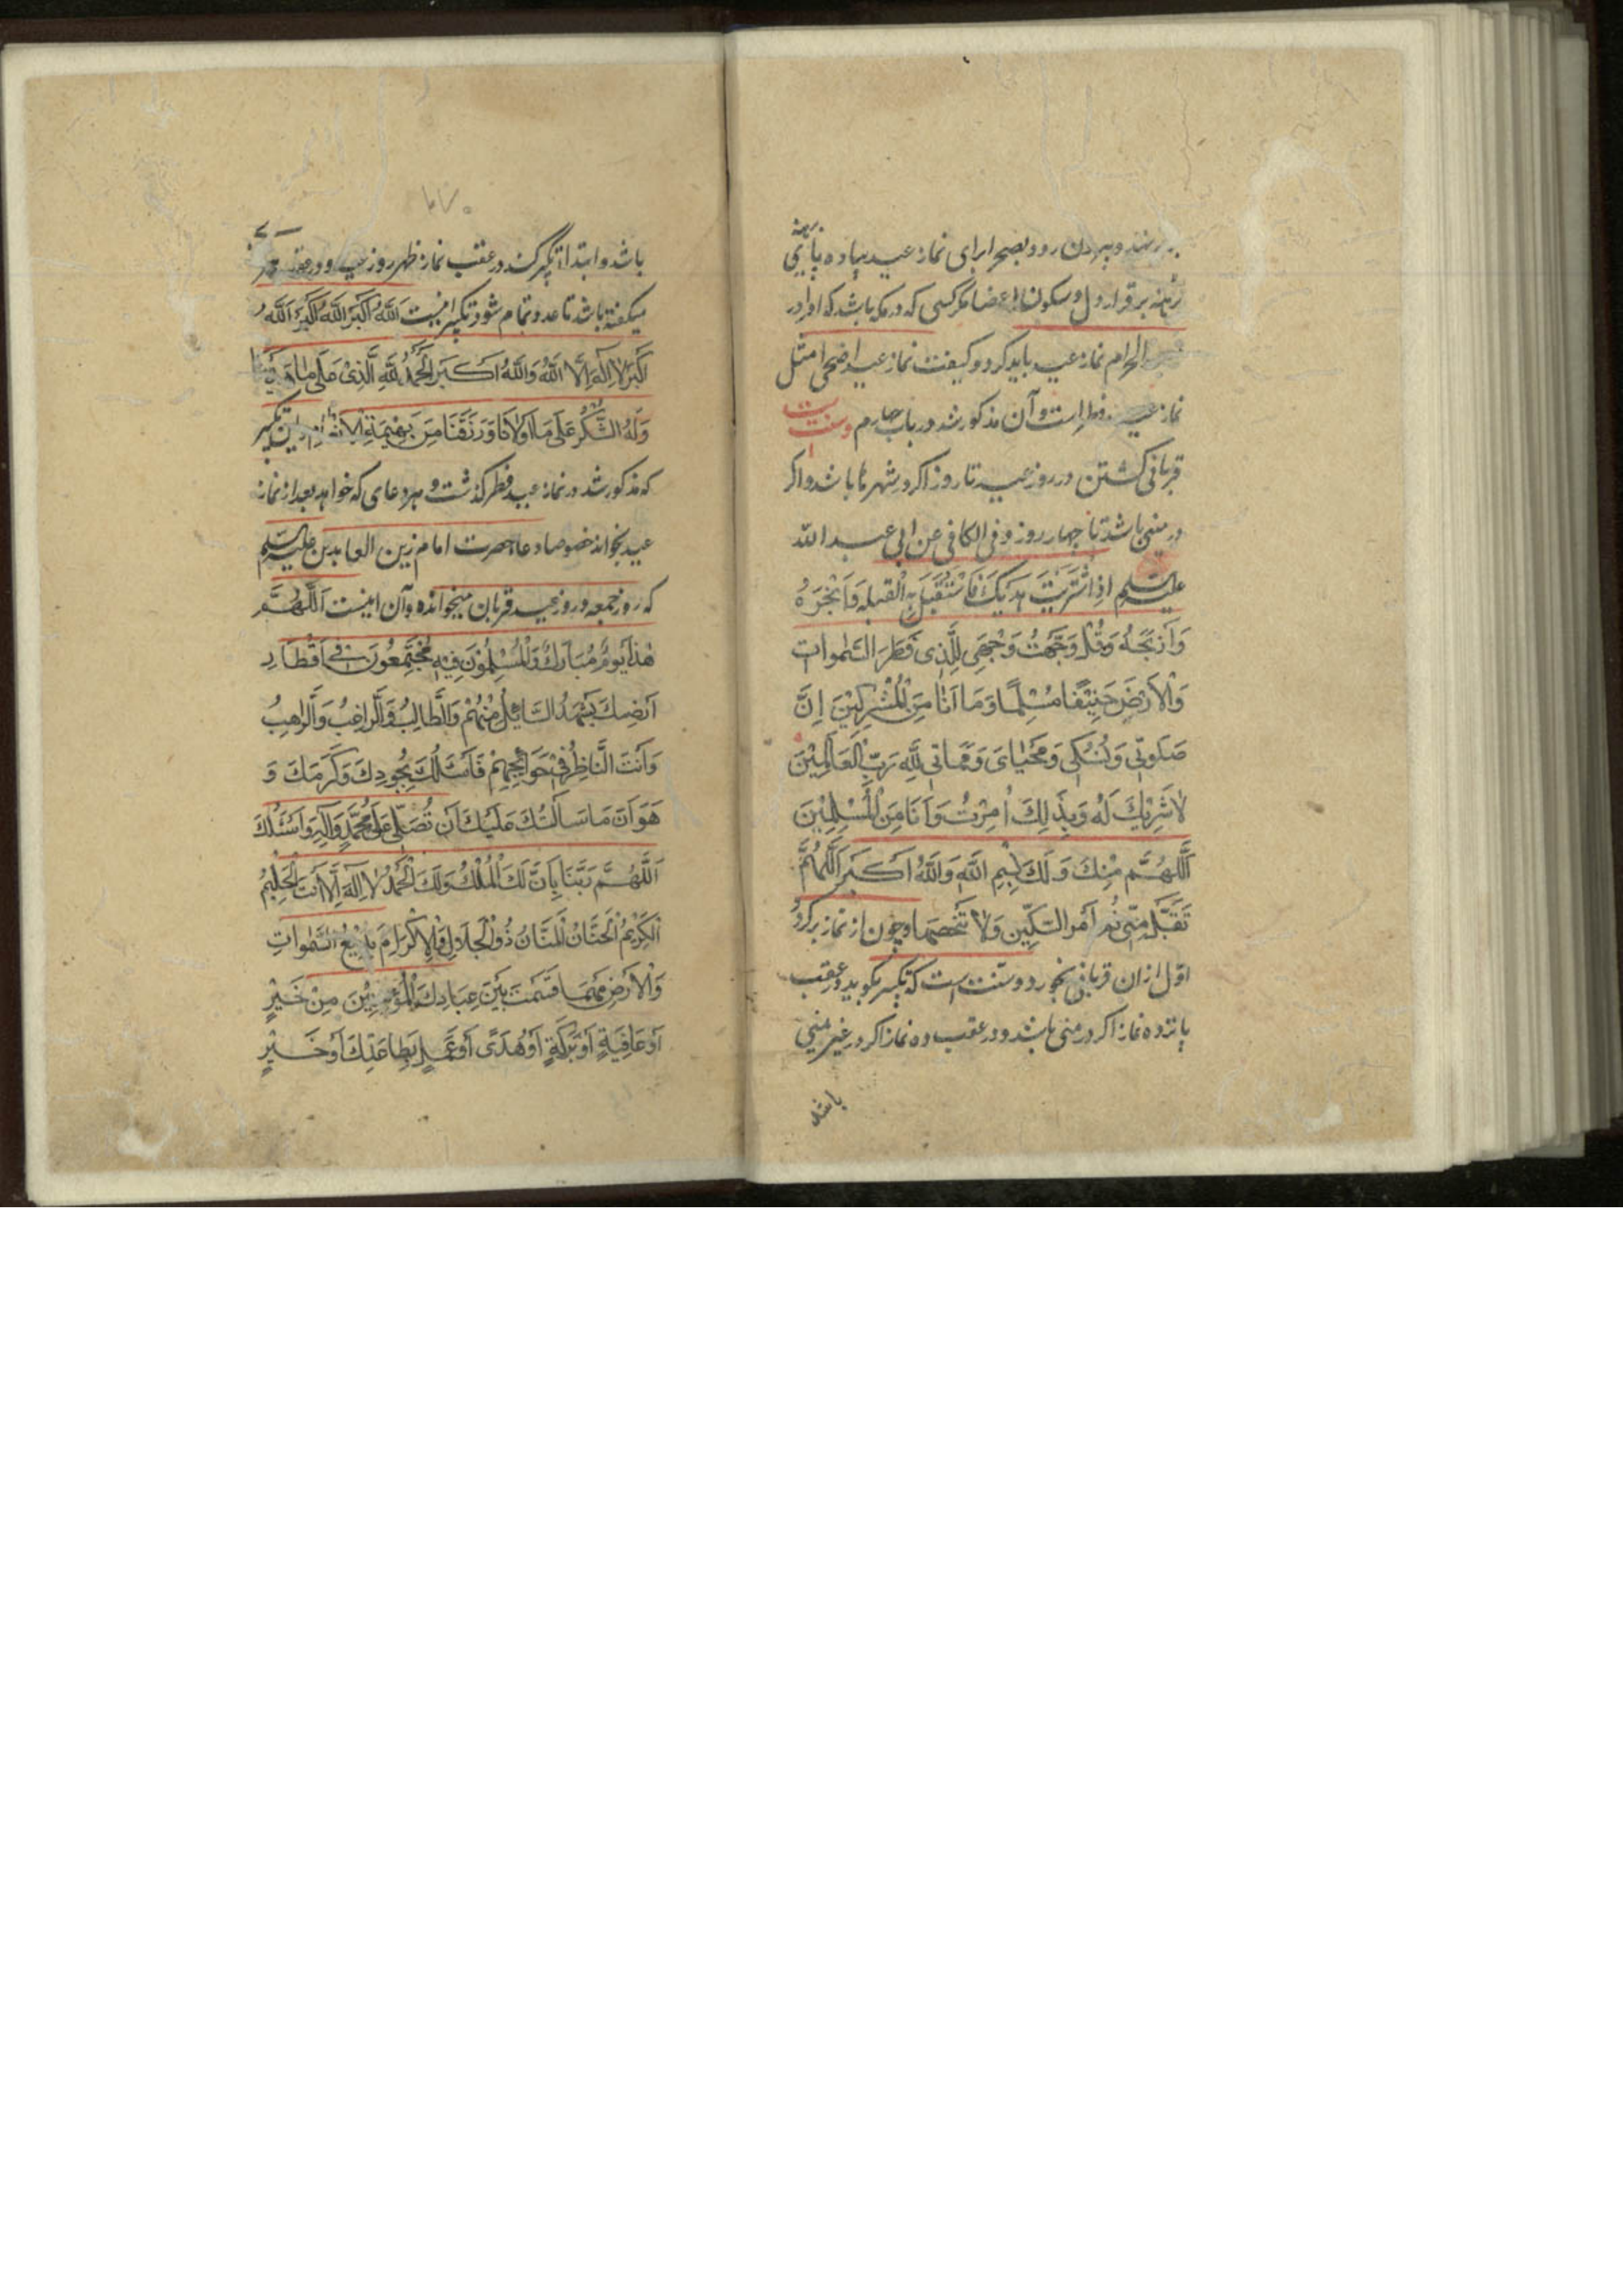 و بیرون رود بصحرا برای نماز عید پیاده پای
برهنه
برقرار دل و سکون اعضا مگر کسی که در مکه باشد که او را در
الحرام نماز عید باید کرد و کیفیت نماز عید اضحی مثل
نماز عید فطر است و آن مذکور شد در باب چهارم و سنت است
قربانی کشتن در روز عید تا روز اگر در شهرها باشد و اگر
در منی باشد تا چهار روز و فی الکافی عن ابی عبد الله
علیه السلم اذا اشْتَرَيْتَ هديك فَاسْتَقْبِل بِهِ الْقبله وَانْحَرْهُ
وَاذْبَحْهُ وَقُلْ وَجَّهْتُ وَجْهِيَ لِلَّذِی فَطَرَ السَّمٰوات
وَالْاَرْضَ حَنِیْفًا مُسْلِمًا وَمَا اَنَا مِنَ الْمُشْرِكِیْنَ اِنَّ
صَلَوتِی وَنُسُكِی وَمَحْيَایَ وَمَمَاتِی لِلّٰهِ رَبِّ الْعَالَمِیْنَ
لَا شَرِیْكَ لَهُ وَبِذَلِكَ اُمِرْتُ وَاَنَا مِنَ الْمُسْلِمِیْنَ
اَللّٰهُمَّ مِنْكَ وَلَكَ بِسْمِ اللّٰهِ وَاللّٰهُ اَكْبَرُ اَللّٰهُمَّ
تَقَبَّلْ مِنِّی ثُم اَمِر السِّكِّین وَلَا تنخعها و چون از نماز برگردد
اوّل ازان قربانی بخورد و سنت است که تکبیر بگوید در عقب
پانزده نماز اگر در منی باشد و در عقب ده نماز اگر در غیر منی
باشد
باشد و ابتدا تکبیر کند در عقب نماز ظهر روز عید و در عقب هر
میکفته باشد تا عدد تمام شود تکبیر اینست اَللّٰهُ اَكْبَرُ اَللّٰهُ اَكْبَرُ اَللّٰهُ
اَكْبَرُ لَا اِلٰهَ اِلَّا اللّٰهُ وَاللّٰهُ اَكْبَرُ الْحَمْدُ لِلّٰهِ الَّذِیْ عَلٰی مَا هَدَیْنَا
وَلَهُ الشُّكْرُ عَلٰی مَا اَوْلَانَا وَرَزَقَنَا مِنْ بَهِیْمَةِ الْاَنْعَامِ این تکبیر
که مذکور شد در نماز عید فطر گذشت و هر دعای که خواهد بعد از نماز
عید بخواند خصوصا دعا حضرت امام زین العابدین علیه السلم
که روز جمعه و روز عید قربان میخوانده و آن اینست اَللّٰهُمَّ
هٰذَا یَوْمٌ مُبَارَكٌ وَالْمُسْلِمُوْنَ فِیْهِ مُجْتَمِعُونَ فِی اَقْطَارِ
اَرْضِكَ یَشْهَدُ السَّائِلُ مِنْهُمْ وَالطَّالِبُ وَالرَّاغِبُ وَالرَّاهِبُ
وَاَنْتَ النَّاظِرُ فِیْ حَوَائِجِهِمْ فَاَسْئَلُكَ بِجُودِكَ وَكَرَمِكَ وَ
هَوَانَ مَا سَاَلْتُكَ عَلَیْكَ اَنْ تُصَلِّی عَلٰی مُحَمَّدٍ وَآلِهِ وَاَسْئَلُكَ
اَللّٰهُمَّ رَبَّنَا بِاَنَّ لَكَ الْمُلْكَ وَلَكَ الْحَمْدُ لَا اِلٰهَ اِلَّا اَنْتَ الْحَلِیْمُ
الْكَرِیْمُ الْحَنَّانُ الْمَنَّانُ ذُو الْجَلَالِ وَالْاِكْرَامِ بَدِیْعُ السَّمٰوَاتِ
وَالْاَرْضِ مَهْمَا قَسَمْتَ بَیْنَ عِبَادِكَ الْمُؤْمِنِیْنَ مِنْ خَیْرٍ
اَوْ عَافِیَةٍ اَوْ بَرَكَةٍ اَوْ هُدًی اَوْ عَمَلٍ بِطَاعَتِكَ اَوْ خَیْرٍ